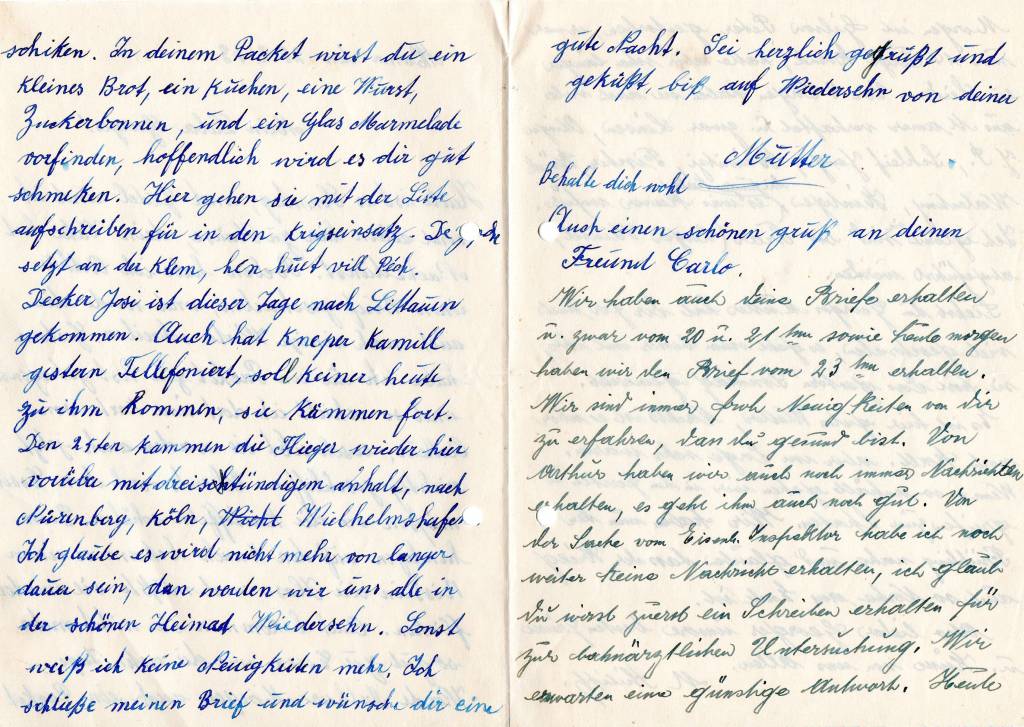 schiken. In deinem Packet wirst du ein
kleines Brot, ein kuchen, eine Wurst,
Zuckerbonnen, und ein Glas Marmelade
vorfinden, hoffendlich wird es dir gut
schmeken. Hier gehen sie mit der Liste
aufschreiben für in den Krigseinsatz.
setzt an der Klem, hen huet vill Péch.
Decker Josi ist dieser Tage nach Littauen
gekommen. Auch hat Kneper Kamill
gestern Tellefoniert, soll keiner heute
zu ihm kommen, sie kämmen fort.
Den 25ten kammen die Flieger wieder hier
vorüber mit dreistündigem anhalt, nach
Nürenberg, Köln, Wielhelmshafen.
Ich glaube es wird nicht mehr von langer
dauer sein, dan werden wir uns alle in
der schönen Heimad Wiedersehn. Sonst
weiß ich keine Neuigkeiten mehr. Ich
schließe meinen Brief und wünsche dir eine
gute Nacht. Sei herzlich gegrüßt und
geküßt, biß auf Wiedersehn von deiner
Mutter
Behalte dich wohl
Auch einen schönen gruß an deinen
Freund Carlo.
Wir haben auch deine Briefe erhalten
u. zwar vom 20 u. 21ten sowie heute morgen
haben wir den Brief vom 23ten erhalten.
Wir sind immer froh Neuigkeiten von dir
zu erfahren, dan du gesund bist. Von
Arthur haben wir auch noch immer Nachrichten
erhalten, es geht ihm auch noch gut. Von
der Sache vom Eisenb. Inspektor habe ich noch
weiter keine Nachricht erhalten, ich glaube
du wirst zuerst ein Schreiben erhalten für
zur bahnärztlichen Untersuchung. Wir
erwarten eine günstige Antwort. Heute